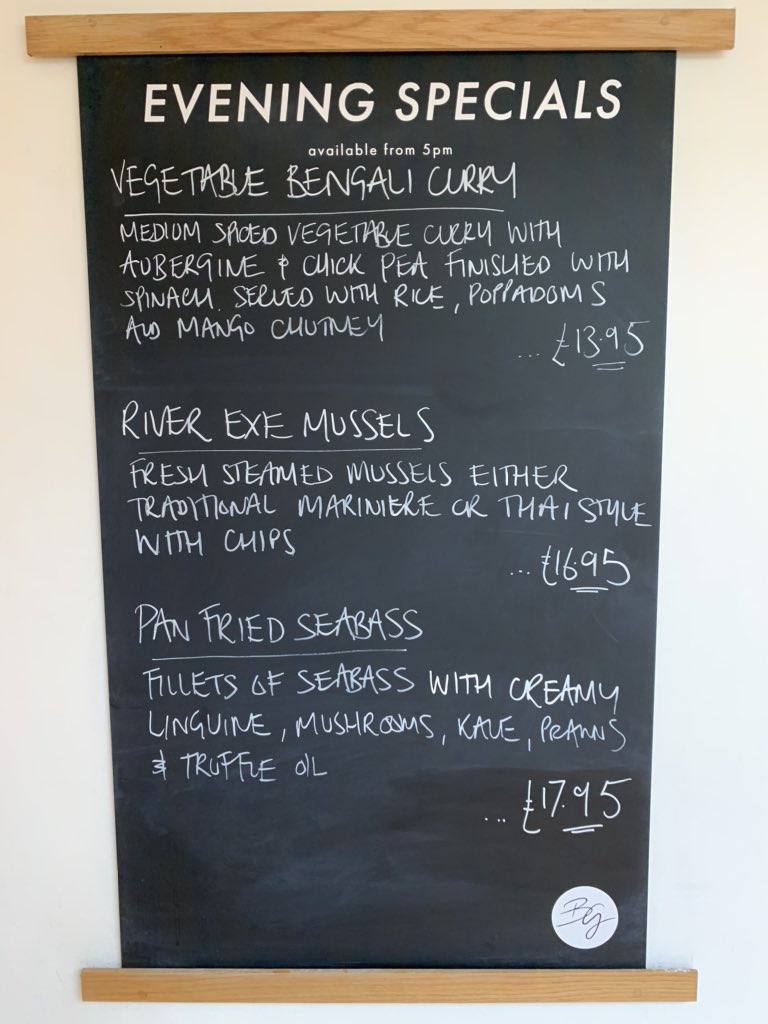 EVENING SPECIALS
available from 5pm
VEGETABLE BENGALI CURRY
MEDIUM SPICED VEGETABLE CURRY WITH
AUBERGINE & CHICK PEA FINISHED WITH
SPINACH. SERVED WITH RICE, POPPADOMS
AND MANGO CHUTNEY
... £13.95
RIVER EXE MUSSELS
FRESH STEAMED MUSSELS EITHER
TRADITIONAL MARINIERE OR THAI STYLE
WITH CHIPS
... £16.95
PAN FRIED SEABASS
FILLETS OF SEABASS WITH CREAMY
LINGUINE, MUSHROOMS, KALE, PRAWNS
& TRUFFLE OIL
... £17.95
BG